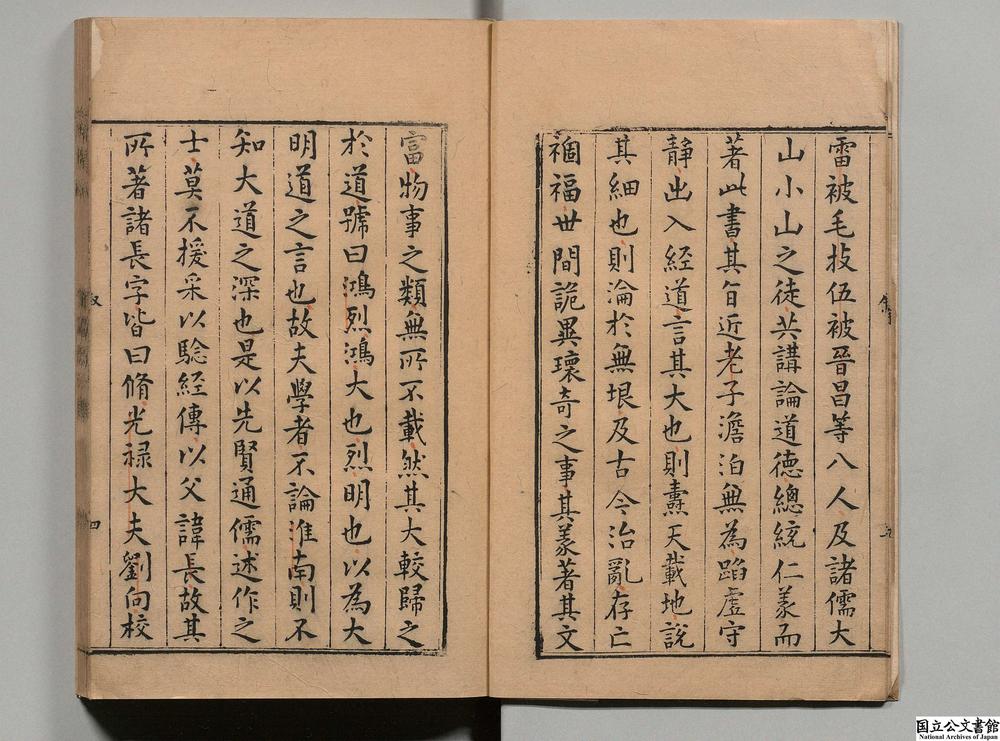 雷被毛技伍被晉昌等八人及諸儒大
山小山之徒共講論道德總統仁義而
著此書其旨近老子澹泊無為蹈虛守
靜出入経道言其大也則燾天載地説
其細也則淪於無垠及古今治亂存亡
禍福世間詭異瓌奇之事其義著其文
富物事之類無所不載然其大較歸之
於道號曰鴻烈鴻大也烈明也以為大
明道之言也故夫學者不論淮南則不
知大道之深也是以先賢通儒述作之
士莫不援采以驗経傳以父諱長故其
所著諸長字皆曰脩光禄大夫劉向校
四
国立公文書館
National Archives of Japan